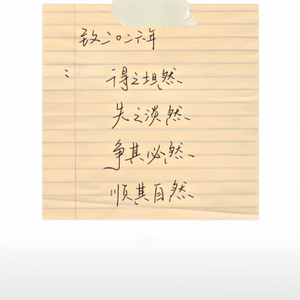 致二〇二六年
：
得之坦然、
失之淡然、
争其必然、
顺其自然、